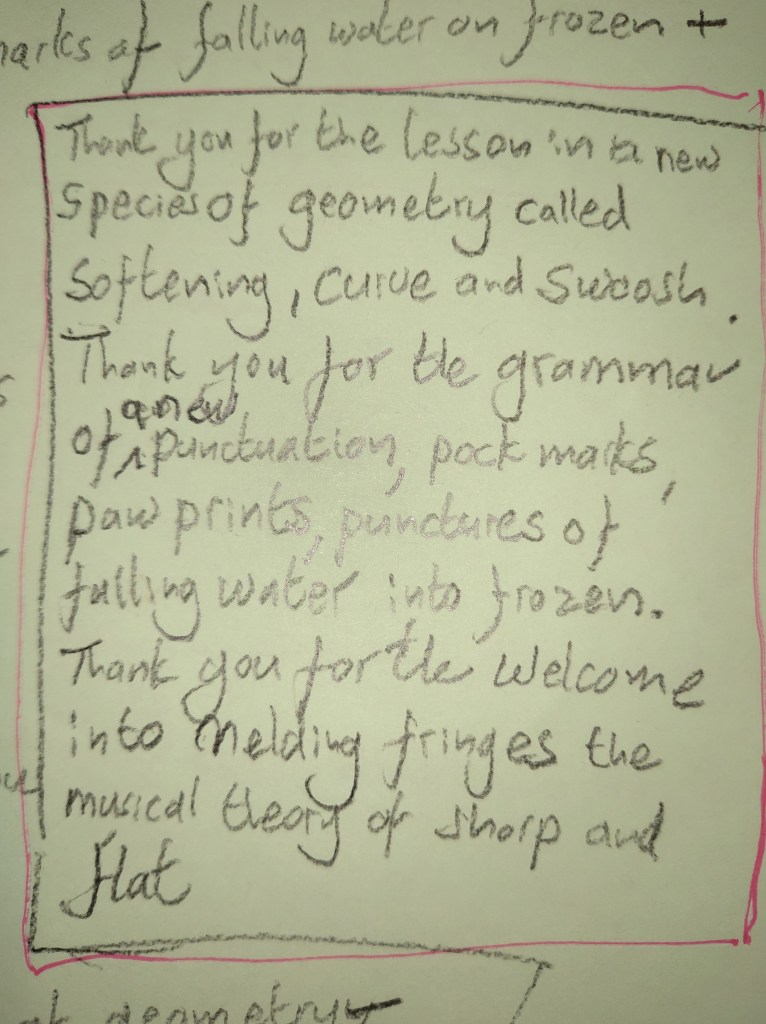 marks of falling water on frozen +
Thank you for the lesson in a new
Species of geometry called
Softening, curve and Swoosh.
Thank you for the grammar
a new
of ^ punctuation, pock marks,
paw prints, punctures of
falling water into frozen.
Thank you for the Welcome
into melding fringes the
musical theory of sharp and
flat
geometry